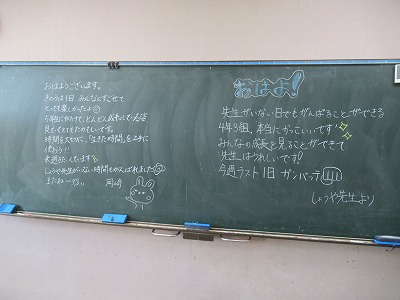 おはようございます。
きのうは1日 みんなとすごせて
とっても楽しかったよ
5年生にむけて、どんどん成長していく姿
見せてくれてたのもしいです。
時間を大切に、「生きた時間」を上手に
使おう!!
来週きたいしています
しょうや先生がいない時間もがんばれました
またね〜
岡崎
おはよ!
先生がいない日でもがんばることができる
4年3組、本当にかっこいいです!
みんなの成長を見ることができて
先生はうれしいです!
今週ラスト1日 ガンバッテ
しょうや先生より